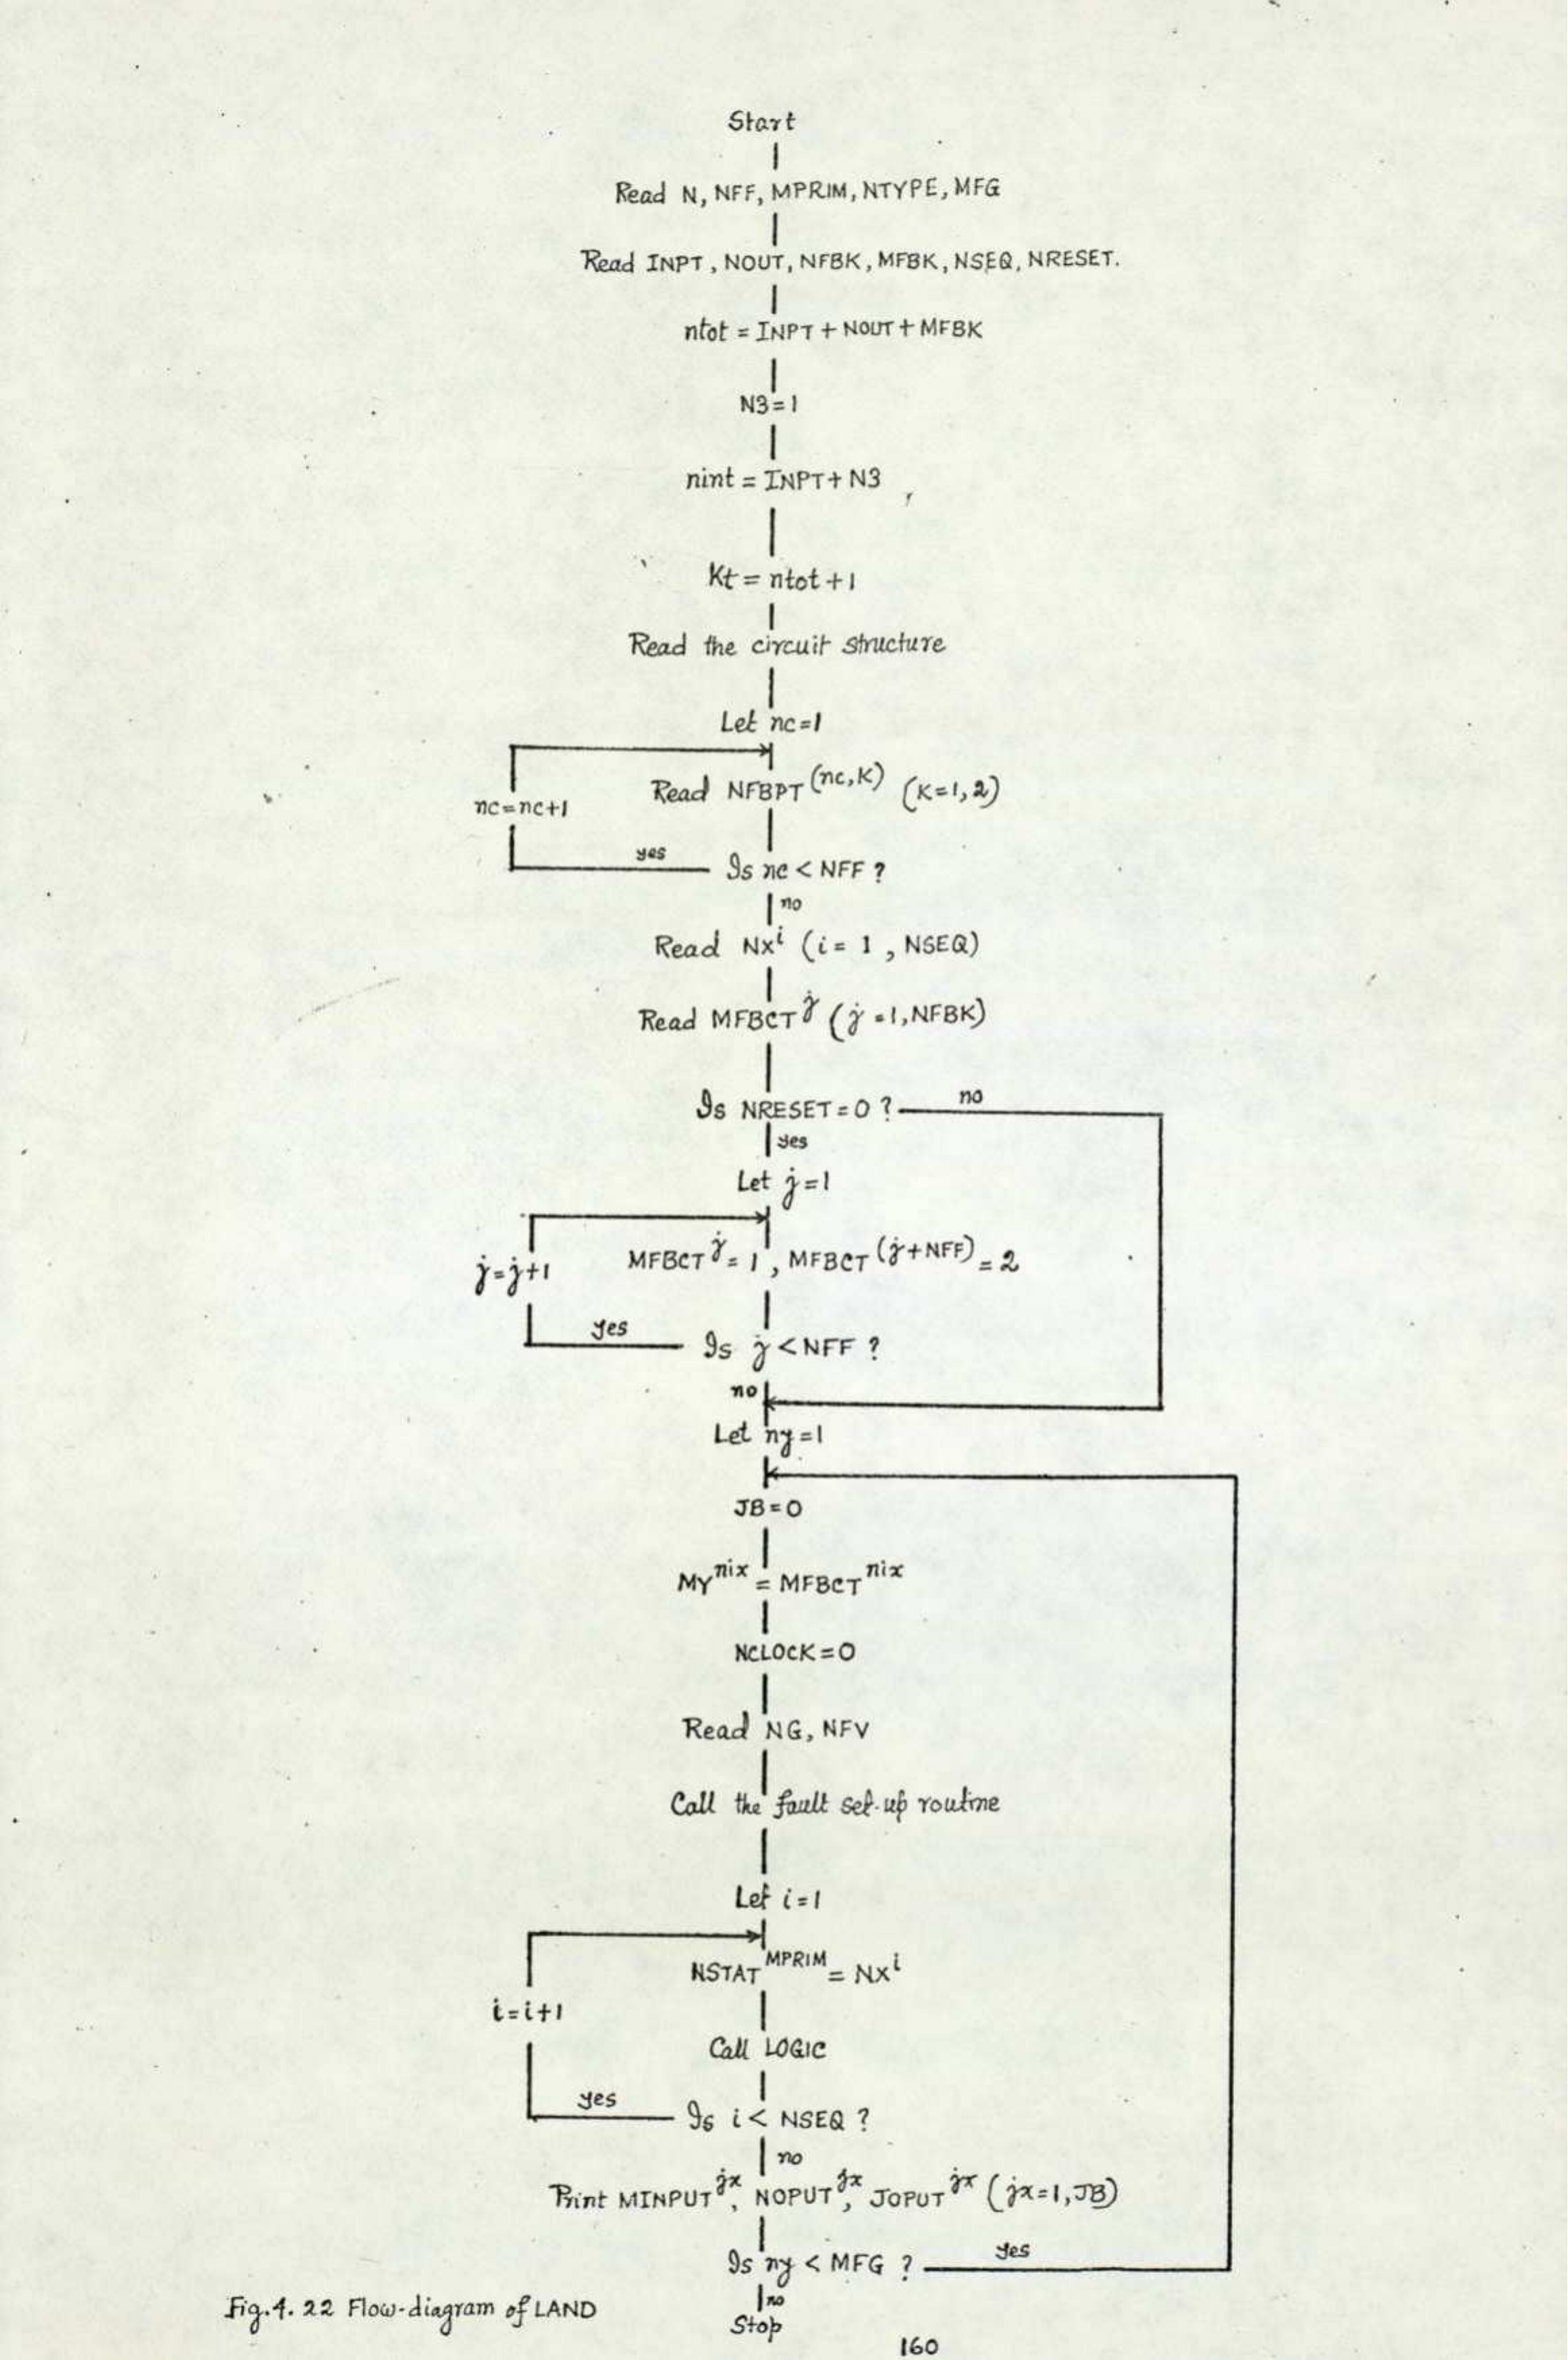 Start
Read N, NFF, MPRIM, NTYPE, MFG
Read INPT, NOUT, NFBK, MFBK, NSEQ, NRESET.
ntot = INPT + NOUT + MFBK
N3=1
nint = INPT + N3
Kt = ntot + 1
Read the circuit structure
Let nc=1
Read NFBPT^(nc,K) (K=1,2)
nc=nc+1
yes
Is nc < NFF ?
no
Read NX^i (i = 1, NSEQ)
Read MFBCT^j (j=1, NFBK)
Is NRESET = 0 ?
no
yes
Let j=1
MFBCT^j = 1, MFBCT^(j+NFF) = 2
j=j+1
yes
Is j < NFF ?
no
Let ny=1
JB=0
MY^nix = MFBCT^nix
NCLOCK=0
Read NG, NFV
Call the fault set-up routine
Let i=1
NSTAT^MPRIM = NX^i
i=i+1
Call LOGIC
yes
Is i < NSEQ ?
no
Print MINPUT^jx, NOPUT^jx, JOPUT^jx (jx=1, JB)
Is ny < MFG ?
yes
no
Fig. 4. 22 Flow-diagram of LAND
Stop
160